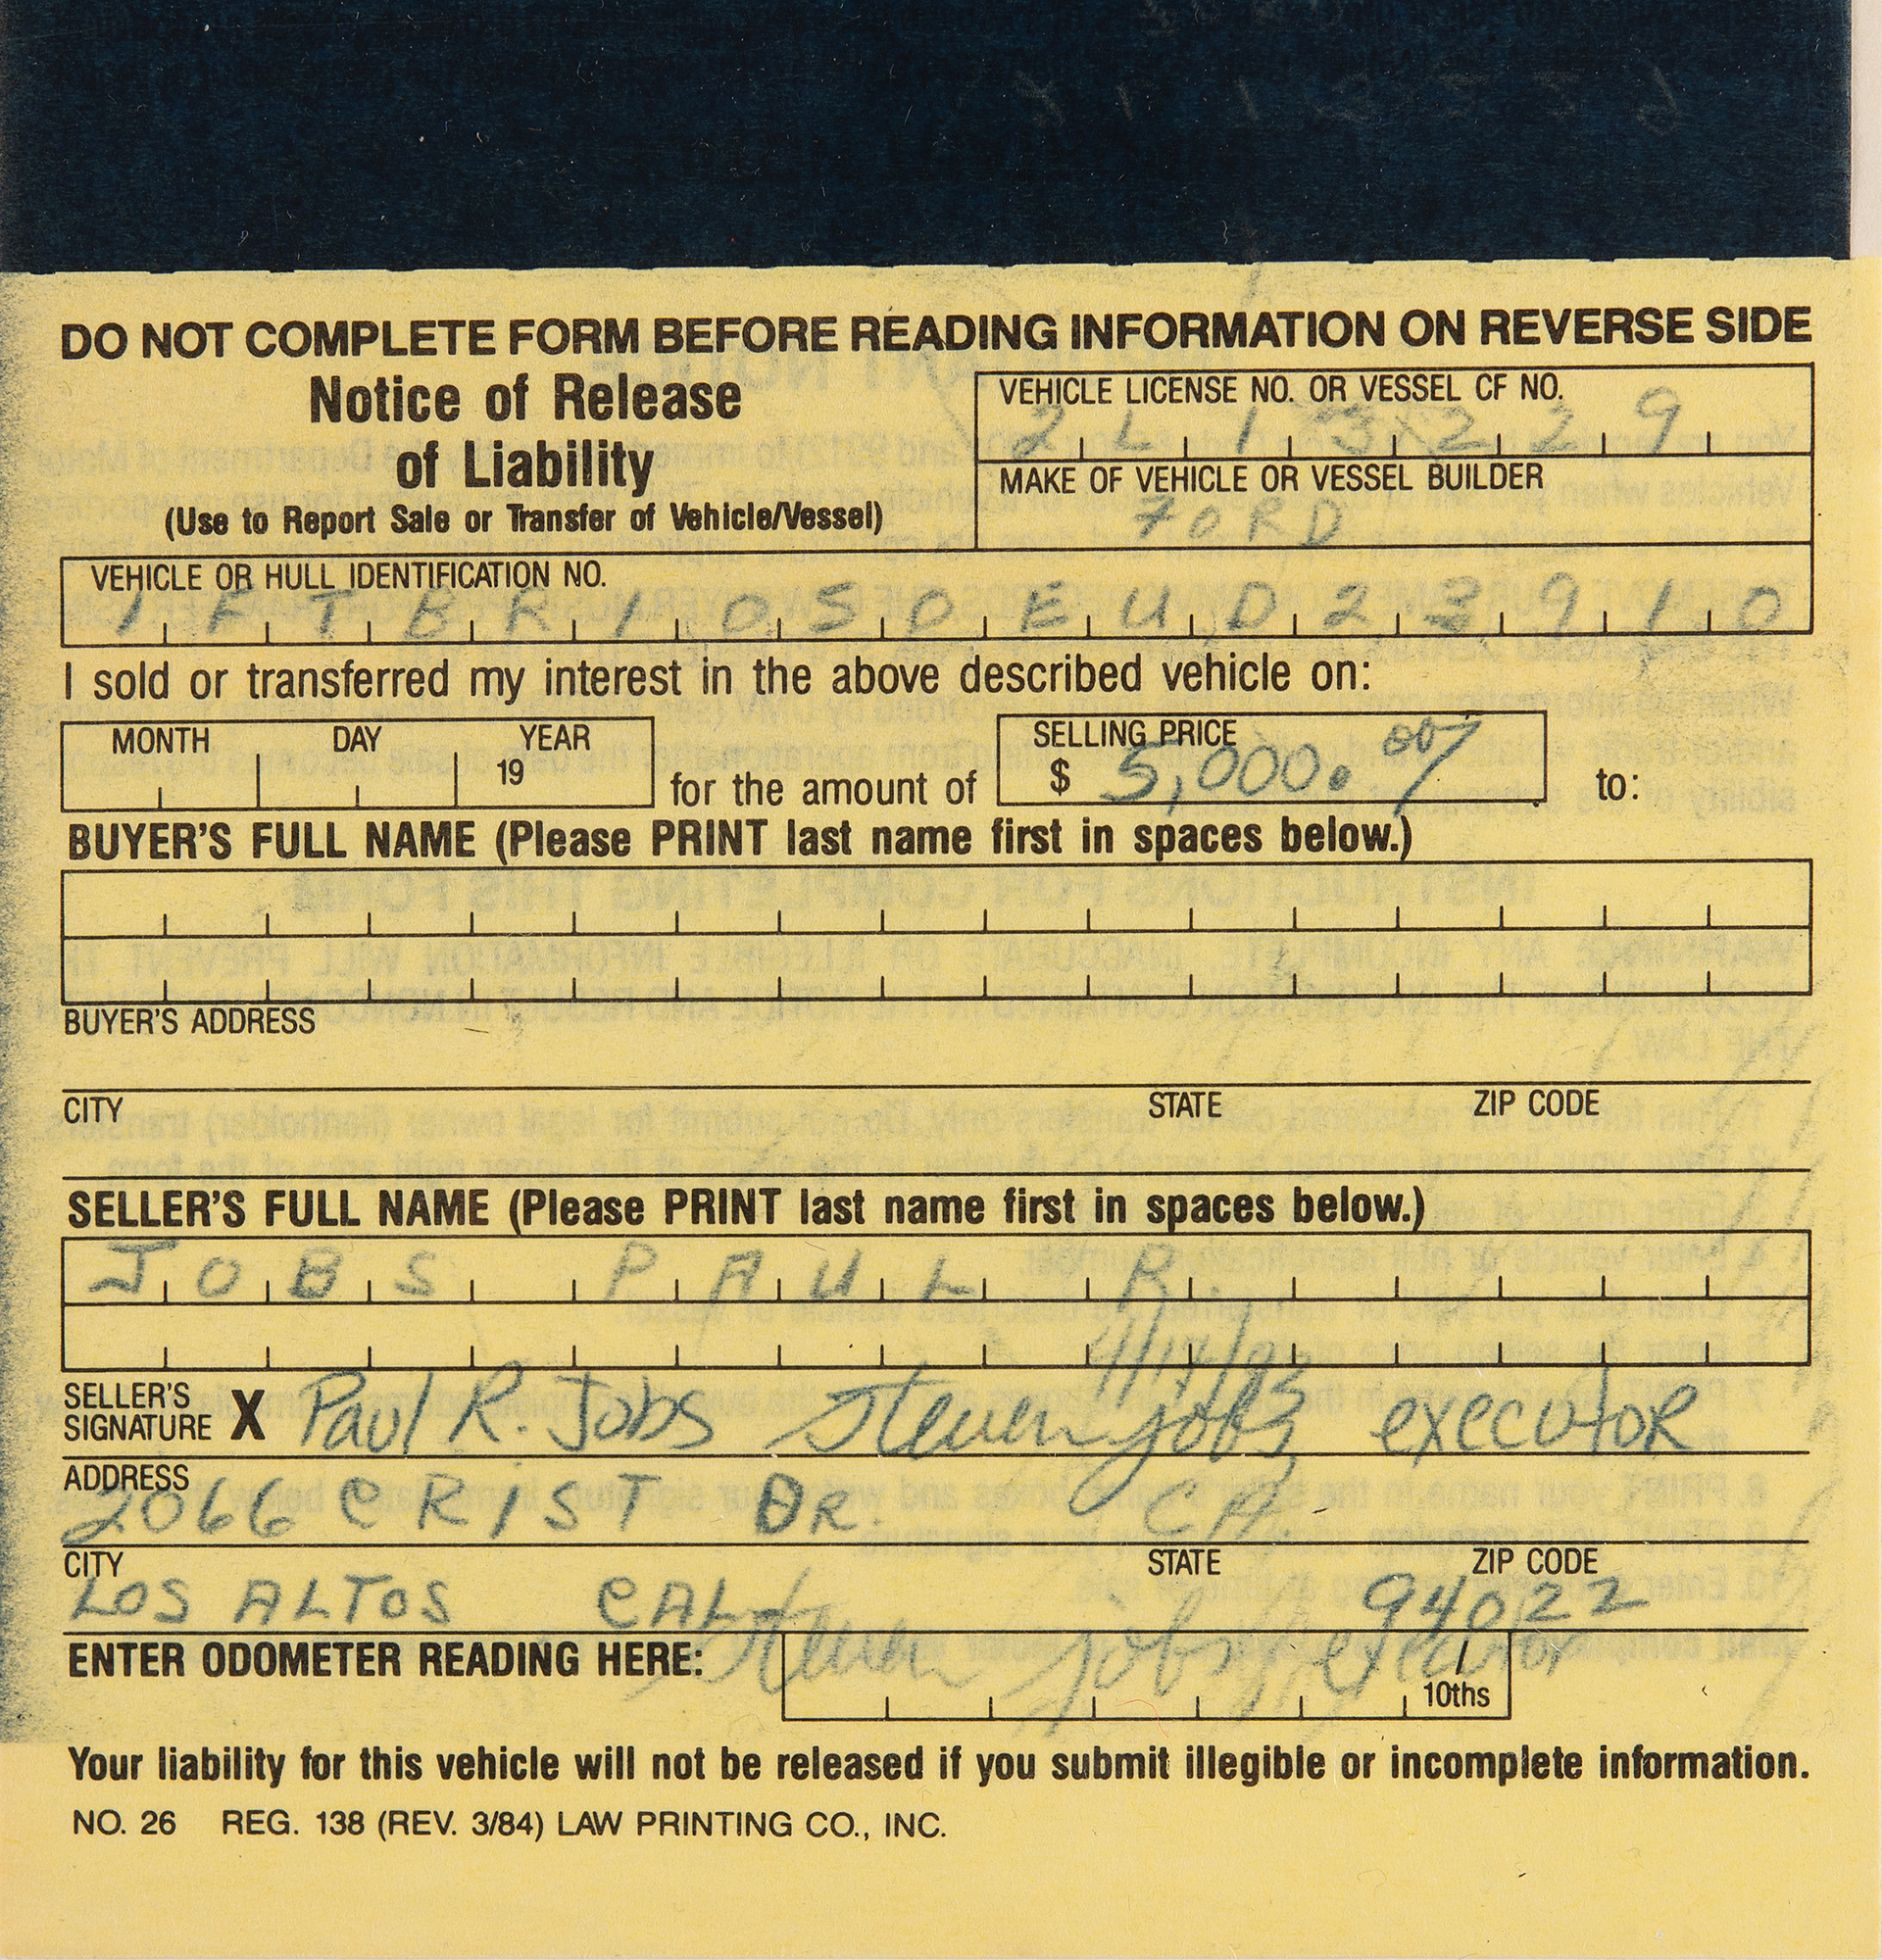 DO NOT COMPLETE FORM BEFORE READING INFORMATION ON REVERSE SIDE
Notice of Release
of Liability
(Use to Report Sale or Transfer of Vehicle/Vessel)
VEHICLE LICENSE NO. OR VESSEL CF NO.
2L13229
MAKE OF VEHICLE OR VESSEL BUILDER
FORD
VEHICLE OR HULL IDENTIFICATION NO.
1FTBR10S0EUD23910
I sold or transferred my interest in the above described vehicle on:
MONTH DAY YEAR
19
for the amount of
SELLING PRICE
$ 5,000.00
to:
BUYER'S FULL NAME (Please PRINT last name first in spaces below.)
BUYER'S ADDRESS
CITY STATE ZIP CODE
SELLER'S FULL NAME (Please PRINT last name first in spaces below.)
JOBS PAUL R
4/17/93
SELLER'S
SIGNATURE X Paul R. Jobs Steven Jobs executor
ADDRESS
2066 CRIST DR. CA
CITY STATE ZIP CODE
LOS ALTOS CAL 94022
Steven Jobs, executor
ENTER ODOMETER READING HERE:
10ths
Your liability for this vehicle will not be released if you submit illegible or incomplete information.
NO. 26 REG. 138 (REV. 3/84) LAW PRINTING CO., INC.